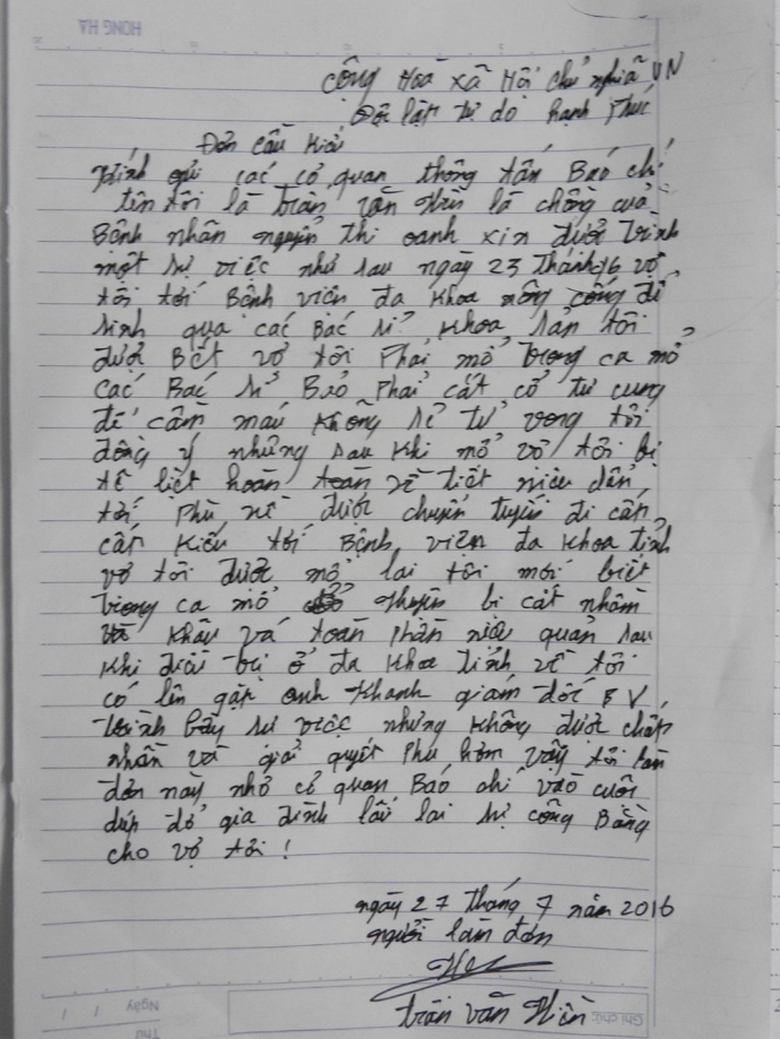 HONG HA
Cộng Hoà Xã Hội chủ nghĩa VN
Độc lập tự do hạnh Phúc
Đơn cầu kíu
Kính gửi các cơ quan thông tấn Báo chí
tên tôi là trần văn Hiền là chồng của
Bệnh nhân nguyễn thị oanh xin được trình
một sự việc như sau ngày 23 tháng 6 vợ
tôi tới Bệnh viện đa khoa nông cống để
sinh qua các Bác sĩ khoa sản tôi
được Biết vợ tôi Phải mổ trong ca mổ
các Bác sĩ Bảo Phải cắt cổ tử cung
để cầm máu không sẽ tử vong tôi
đồng ý nhưng sau khi mổ vợ tôi bị
tê liệt hoàn toàn về tiết niệu dẫn
tới Phù nề được chuyển tuyến đi cấp
cấp kíu tới Bệnh viện đa khoa tỉnh
vợ tôi được mổ lại tôi mới biết
trong ca mổ bị cắt nhầm
khâu và toàn Phần niệu quản sau
khi điều trị ở đa khoa tỉnh về tôi
có lên gặp anh Khanh giám đốc BV
trình bầy sự việc nhưng không được chấp
nhận và giải quyết Phù hợp vậy tôi làm
đơn này nhờ cơ quan Báo chí vào cuộc
dúp đỡ gia đình lấy lại sự công Bằng
cho vợ tôi !
ngày 27 tháng 7 năm 2016
người làm đơn
trần văn Hiền
Ghi chú:
Ngày / /
Thứ